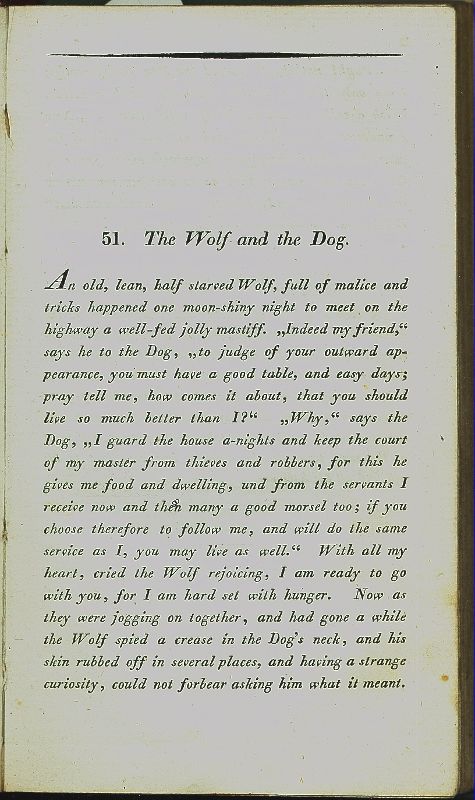 51. The Wolf and the Dog.
An old, lean, half starved Wolf, full of malice and
tricks happened one moon-shiny night to meet on the
highway a well-fed jolly mastiff. „Indeed my friend,“
says he to the Dog, „to judge of your outward ap-
pearance, you must have a good table, and easy days;
pray tell me, how comes it about, that you should
live so much better than I?“ „Why,“ says the
Dog, „I guard the house a-nights and keep the court
of my master from thieves and robbers, for this he
gives me food and dwelling, und from the servants I
receive now and then many a good morsel too; if you
choose therefore to follow me, and will do the same
service as I, you may live as well.“ With all my
heart, cried the Wolf rejoicing, I am ready to go
with you, for I am hard set with hunger. Now as
they were jogging on together, and had gone a while
the Wolf spied a crease in the Dog's neck, and his
skin rubbed off in several places, and having a strange
curiosity, could not forbear asking him what it meant.